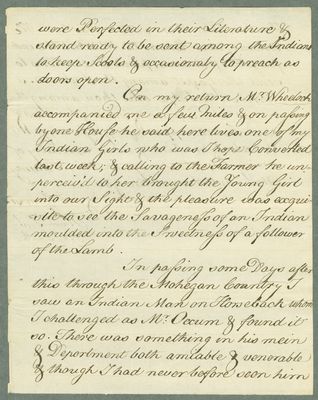 were Perfected in their Literature &
stand ready to be sent among the Indians
to keep Scools & occasionaly to preach as
doors open.
On my return Mr. Wheelock
accompanied me a few miles & on passing
by one House he said here lives one of my
Indian Girls who was I hope Converted
last week; & calling to the Farmer he un
perceiv'd to her brought the Young Girl
into our Sight & the pleasure was exqui-
site to see the Savageness of an Indian
moulded into the Sweetness of a follower
of the Lamb.
In passing some Days after
this through the Mohegan Country I
saw an Indian Man on Horseback whom
I challenged as Mr. Occum & found it
so. There was something in his mein
& Deportment both amiable & venorable
& though I had never before seen him